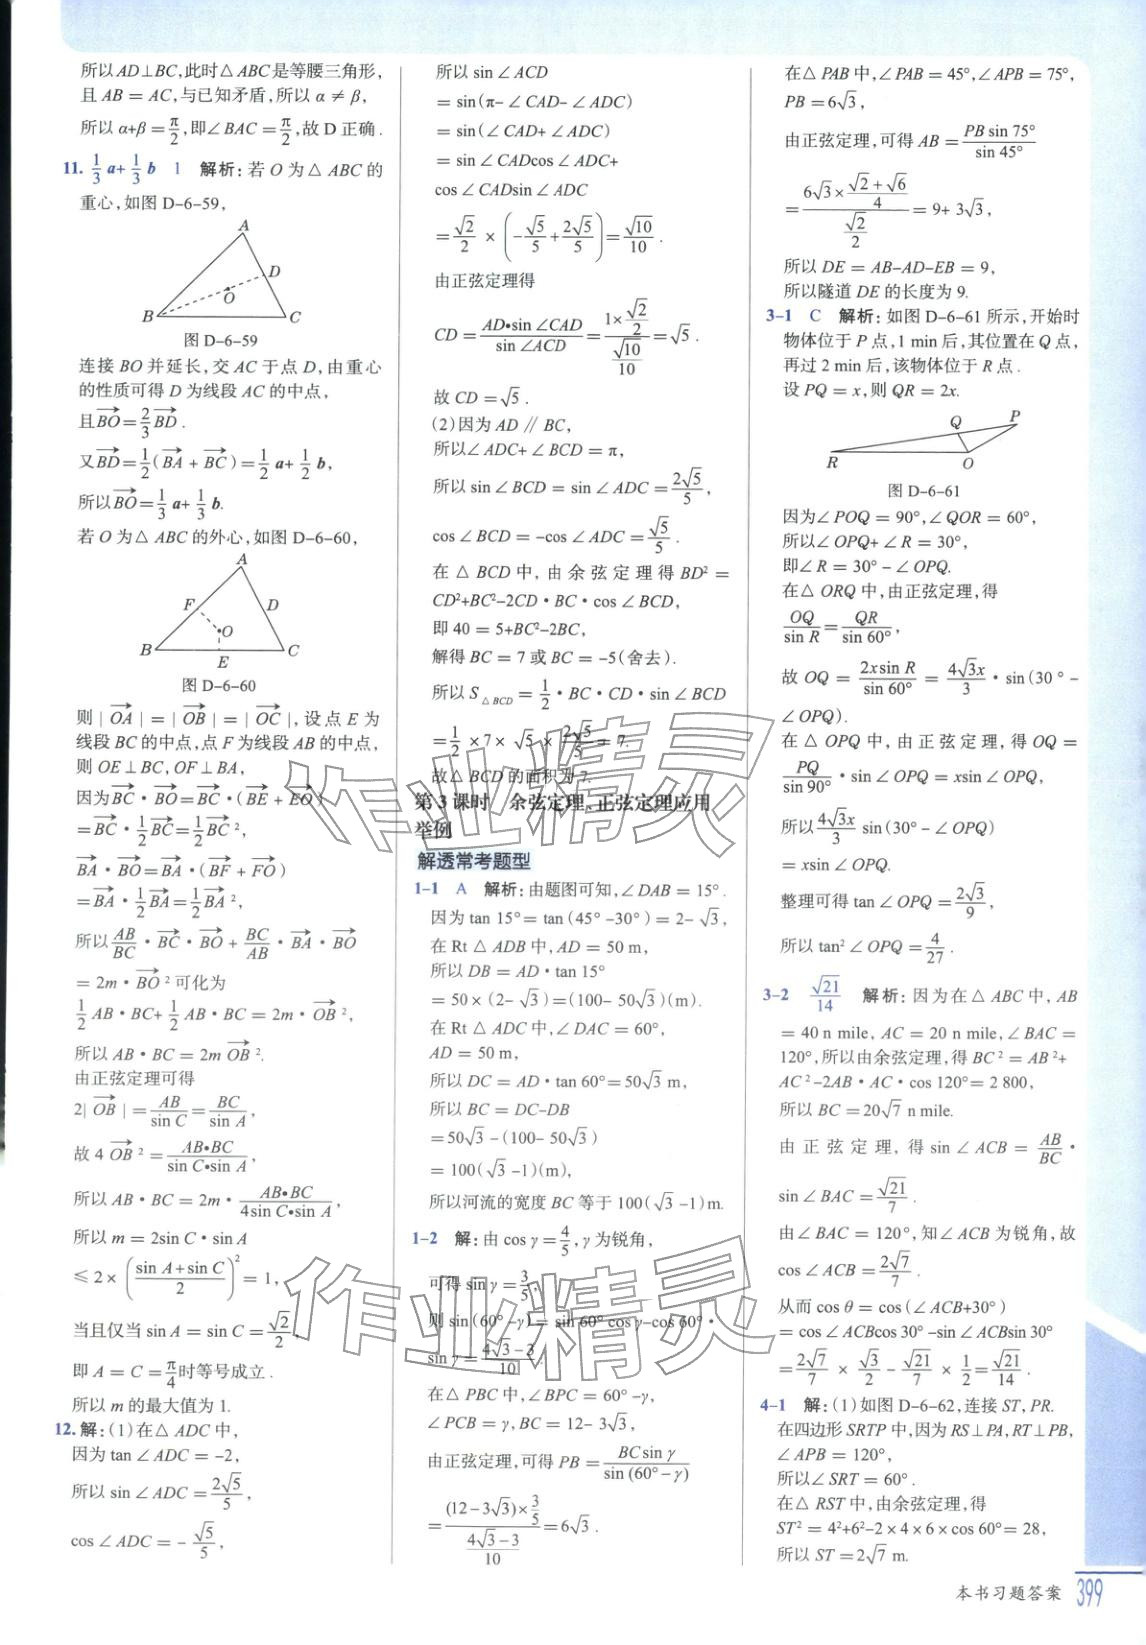 所以AD⊥BC,此时△ABC是等腰三角形,
且AB=AC,与已知矛盾,所以α≠β,
所以α+β=π/2,即∠BAC=π/2,故D正确.
11. 1/3 a+1/3 b  1  解析:若O为△ABC的
重心,如图D-6-59,
A
D
O
B
C
图D-6-59
连接BO并延长,交AC于点D,由重心
的性质可得D为线段AC的中点,
且BO→=2/3 BD→.
又BD→=1/2(BA→+BC→)=1/2 a+1/2 b,
所以BO→=1/3 a+1/3 b.
若O为△ABC的外心,如图D-6-60,
A
F
D
O
B
C
E
图D-6-60
则|OA→|=|OB→|=|OC→|,设点E为
线段BC的中点,点F为线段AB的中点,
则OE⊥BC,OF⊥BA,
因为BC→·BO→=BC→·(BE→+EO→)
=BC→·1/2 BC→=1/2 BC→²,
BA→·BO→=BA→·(BF→+FO→)
=BA→·1/2 BA→=1/2 BA→²,
所以AB/BC·BC→·BO→+BC/AB·BA→·BO→
=2m·BO→²可化为
1/2 AB·BC+1/2 AB·BC=2m·OB→²,
所以AB·BC=2m OB→².
由正弦定理可得
2|OB→|=AB/sin C=BC/sin A,
故4 OB→²=AB•BC/(sin C•sin A),
所以AB·BC=2m·AB•BC/(4sin C•sin A),
所以m=2sin C·sin A
≤2×((sin A+sin C)/2)²=1,
当且仅当sin A=sin C=√2/2,
即A=C=π/4时等号成立.
所以m的最大值为1.
12.解:(1)在△ADC中,
因为tan∠ADC=-2,
所以sin∠ADC=2√5/5,
cos∠ADC=-√5/5,
所以sin∠ACD
=sin(π-∠CAD-∠ADC)
=sin(∠CAD+∠ADC)
=sin∠CADcos∠ADC+
cos∠CADsin∠ADC
=√2/2×(-√5/5+2√5/5)=√10/10.
由正弦定理得
CD=AD•sin∠CAD/sin∠ACD=(1×√2/2)/(√10/10)=√5.
故CD=√5.
(2)因为AD∥BC,
所以∠ADC+∠BCD=π,
所以sin∠BCD=sin∠ADC=2√5/5,
cos∠BCD=-cos∠ADC=√5/5.
在△BCD中,由余弦定理得BD²=
CD²+BC²-2CD·BC·cos∠BCD,
即40=5+BC²-2BC,
解得BC=7或BC=-5(舍去).
所以S△BCD=1/2·BC·CD·sin∠BCD
=1/2×7×√5×2√5/5=7.
故△BCD的面积为7.
第3课时 余弦定理、正弦定理应用
举例
解透常考题型
1-1 A 解析:由题图可知,∠DAB=15°.
因为tan 15°=tan(45°-30°)=2-√3,
在Rt△ADB中,AD=50 m,
所以DB=AD·tan 15°
=50×(2-√3)=(100-50√3)(m).
在Rt△ADC中,∠DAC=60°,
AD=50 m,
所以DC=AD·tan 60°=50√3 m,
所以BC=DC-DB
=50√3-(100-50√3)
=100(√3-1)(m),
所以河流的宽度BC等于100(√3-1)m.
1-2 解:由cos γ=4/5,γ为锐角,
可得sin γ=3/5,
则sin(60°-γ)=sin 60°cos γ-cos 60°·
sin γ=(4√3-3)/10.
在△PBC中,∠BPC=60°-γ,
∠PCB=γ,BC=12-3√3,
由正弦定理,可得PB=BCsin γ/sin(60°-γ)
=((12-3√3)×3/5)/((4√3-3)/10)=6√3.
在△PAB中,∠PAB=45°,∠APB=75°,
PB=6√3,
由正弦定理,可得AB=PBsin 75°/sin 45°
=(6√3×(√2+√6)/4)/(√2/2)=9+3√3,
所以DE=AB-AD-EB=9,
所以隧道DE的长度为9.
3-1 C 解析:如图D-6-61所示,开始时
物体位于P点,1 min后,其位置在Q点,
再过2 min后,该物体位于R点.
设PQ=x,则QR=2x.
P
Q
R
O
图D-6-61
因为∠POQ=90°,∠QOR=60°,
所以∠OPQ+∠R=30°,
即∠R=30°-∠OPQ.
在△ORQ中,由正弦定理,得
OQ/sin R=QR/sin 60°,
故OQ=2xsin R/sin 60°=4√3x/3·sin(30°-
∠OPQ).
在△OPQ中,由正弦定理,得OQ=
PQ/sin 90°·sin∠OPQ=xsin∠OPQ,
所以4√3x/3 sin(30°-∠OPQ)
=xsin∠OPQ.
整理可得tan∠OPQ=2√3/9,
所以tan²∠OPQ=4/27.
3-2 √21/14 解析:因为在△ABC中,AB
=40 n mile,AC=20 n mile,∠BAC=
120°,所以由余弦定理,得BC²=AB²+
AC²-2AB·AC·cos 120°=2 800,
所以BC=20√7 n mile.
由正弦定理,得sin∠ACB=AB/BC·
sin∠BAC=√21/7.
由∠BAC=120°,知∠ACB为锐角,故
cos∠ACB=2√7/7.
从而cos θ=cos(∠ACB+30°)
=cos∠ACBcos 30°-sin∠ACBsin 30°
=2√7/7×√3/2-√21/7×1/2=√21/14.
4-1 解:(1)如图D-6-62,连接ST,PR.
在四边形SRTP中,因为RS⊥PA,RT⊥PB,
∠APB=120°,
所以∠SRT=60°.
在△RST中,由余弦定理,得
ST²=4²+6²-2×4×6×cos 60°=28,
所以ST=2√7 m.
本书习题答案 399
作业精灵
作业精灵